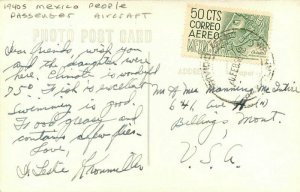 1940s MEXICO PEOPLE
PASSENGER AIRCRAFT
PHOTO POST CARD
50 CTS
CORREO
AEREO
MEXICO
Dear friends wish you
and the daughter were
here. Climate is wonderful
75° Fish is excellent
Swimming is good.
Food greasy and
contains a few flies.
Love,
Leslie
Mr & Mrs Manning McIntire
641 Ave
Billings Mont.
U.S.A.